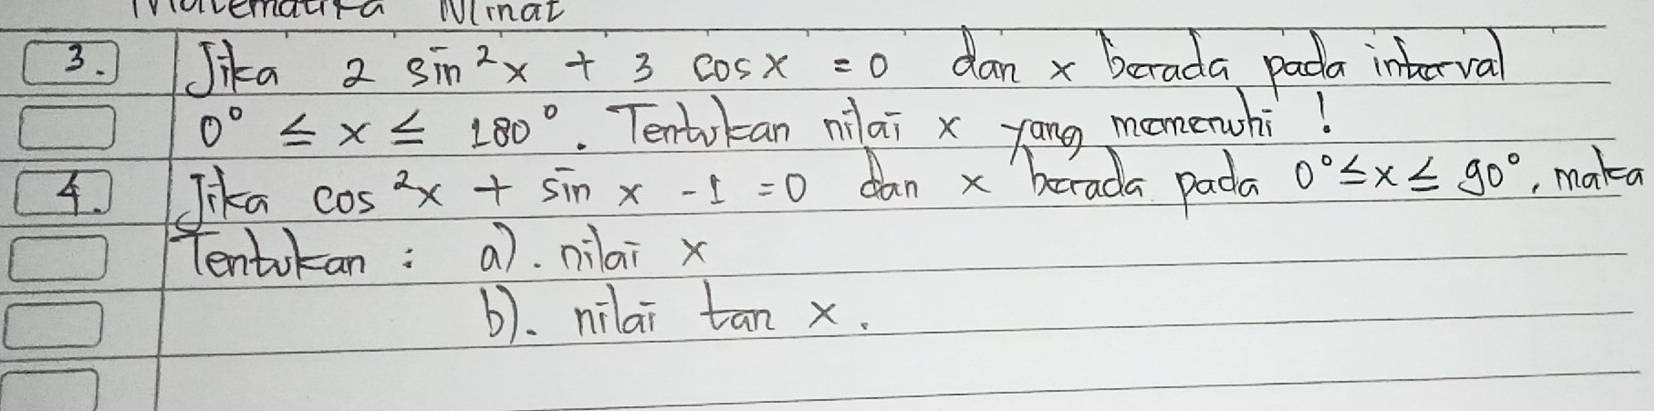 Matematika Minat
3. Jika 2 sin²x + 3 cos x = 0 dan x berada pada interval
0° ≤ x ≤ 180°. Tentukan nilai x yang memenuhi !
4. Jika cos²x + sin x - 1 = 0 dan x berada pada 0° ≤ x ≤ 90°, maka
Tentukan : a). nilai x
b). nilai tan x.